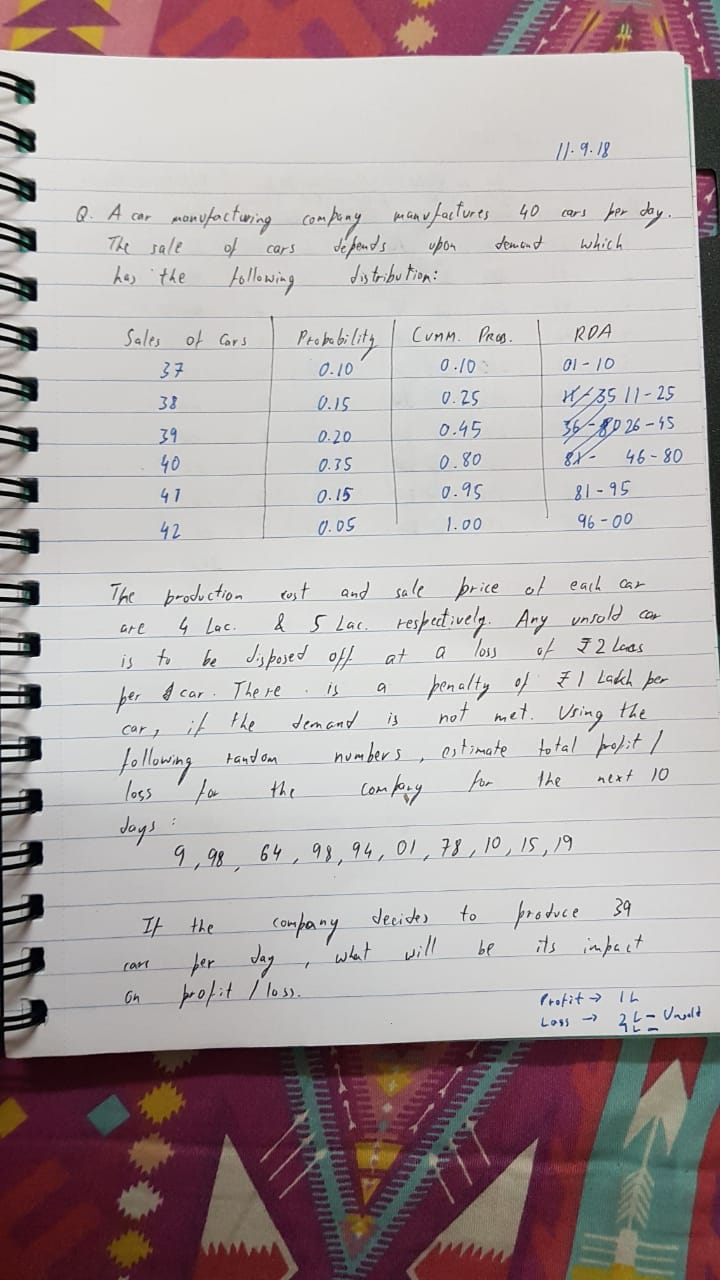 11.9.18
Q. A car manufacturing company manufactures 40 cars per day.
The sale of cars depends upon demand which
has the following distribution:
Sales of Cars Probability Cumm. Prob. RDA
37 0.10 0.10 01-10
38 0.15 0.25 11-25
39 0.20 0.45 26-45
40 0.35 0.80 46-80
41 0.15 0.95 81-95
42 0.05 1.00 96-00
The production cost and sale price of each car
are 4 Lac. & 5 Lac. respectively. Any unsold car
is to be disposed off at a loss of ₹2 Lacs
per car. There is a penalty of ₹1 Lakh per
car, if the demand is not met. Using the
following random numbers, estimate total profit /
loss for the company for the next 10
days:
9, 98, 64, 98, 94, 01, 78, 10, 15, 19
If the company decides to produce 39
cars per day, what will be its impact
on profit / loss.
Profit → 1L
Loss → 2L - Unsold